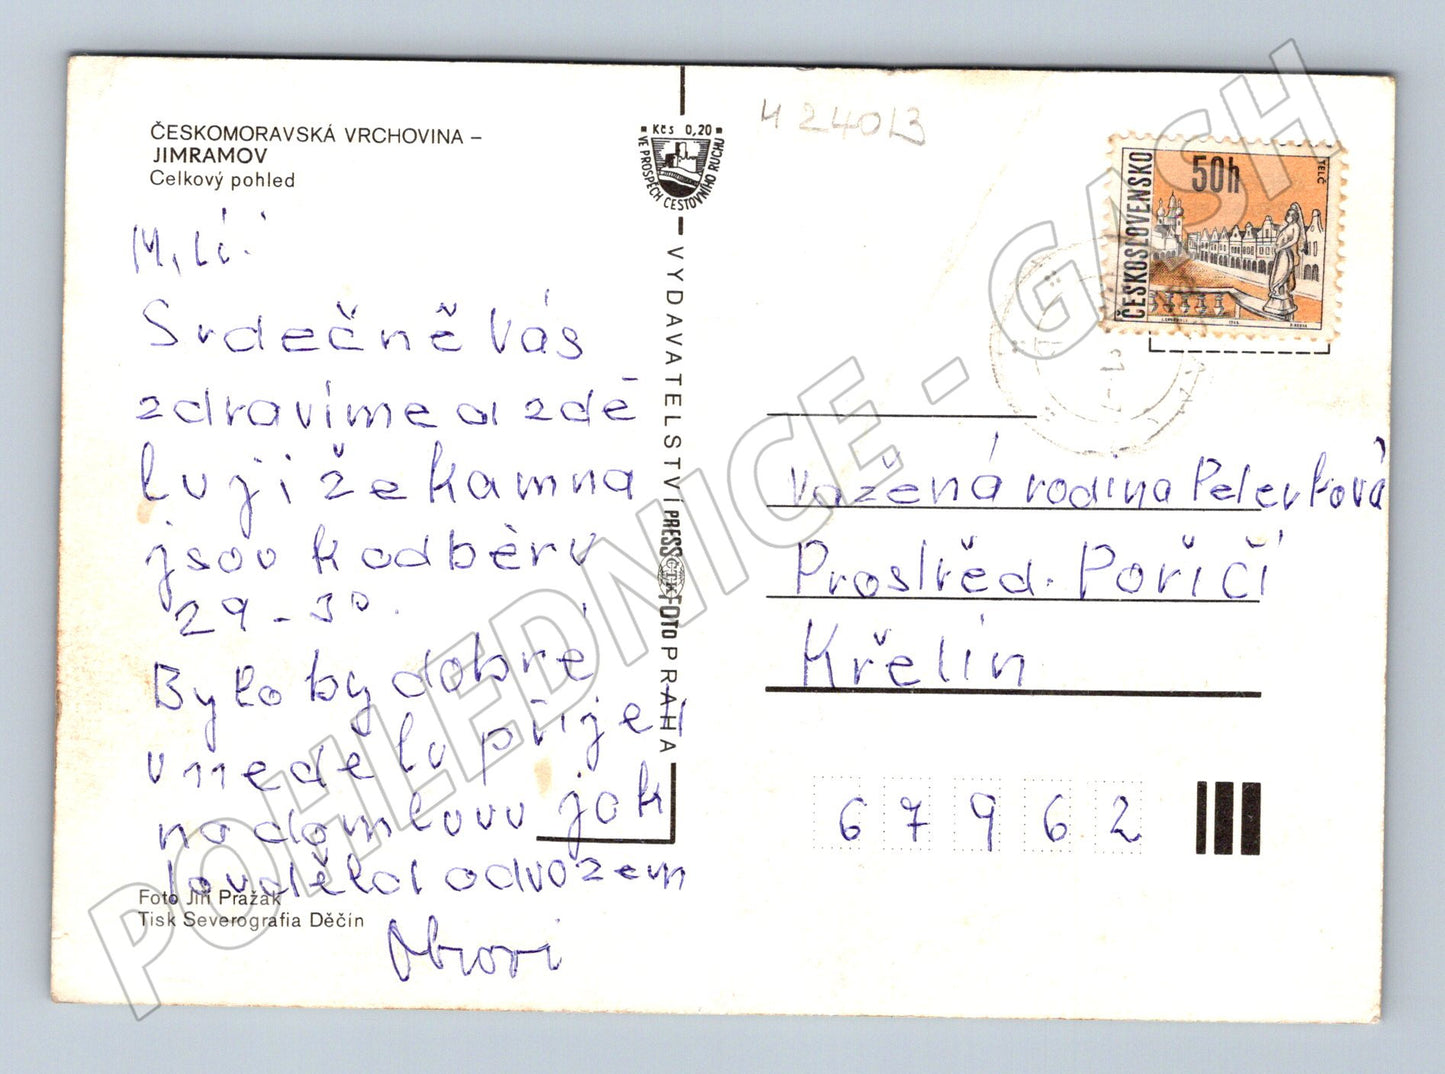 ČESKOMORAVSKÁ VRCHOVINA –
JIMRAMOV
Celkový pohled
Kčs 0,20
VE PROSPĚCH CESTOVNÍHO RUCHU
H 24013
ČESKOSLOVENSKO
50h
TELČ
Milí.
Srdečně Vás
zdravíme a zdě
luji že kamna
jsou k odběru
29-30.
Bylo by dobré
v neděly přijet
na domluvu jak
odvozem
VYDAVATELSTVÍ PRESSFOTO PRAHA
ČTK
Vážená rodina Pelerková
Prostřed. Poříčí
Křelín
67962
Foto Jiří Pražák
Tisk Severografia Děčín
POHLEDNICE - GASH